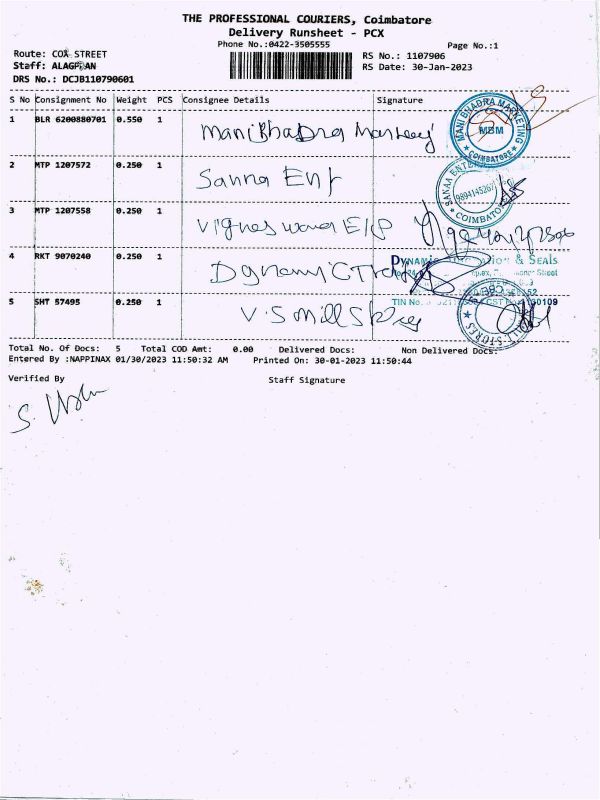 THE PROFESSIONAL COURIERS, Coimbatore
Delivery Runsheet - PCX
Phone No.:0422-3505555
Page No.:1
Route: COX STREET
RS No.: 1107906
Staff: ALAGPPAN
RS Date: 30-Jan-2023
DRS No.: DCJB110790601
S No Consignment No Weight PCS Consignee Details Signature
1 BLR 6200880701 0.550 1 ManiBhadra
MANI BHADRA MARKETING
MBM
* COIMBATORE *
2 MTP 1207572 0.250 1 Sanna Ent
9894145267
COIMBATO
3 MTP 1207558 0.250 1
4 RKT 9070240 0.250 1 Dynamic
& SEALS
5 SHT 57495 0.250 1 V S Mill
TIN No.
STORES
Total No. Of Docs: 5 Total COD Amt: 0.00 Delivered Docs: Non Delivered Docs:
Entered By :NAPPINAX 01/30/2023 11:50:32 AM Printed On: 30-01-2023 11:50:44
Verified By Staff Signature